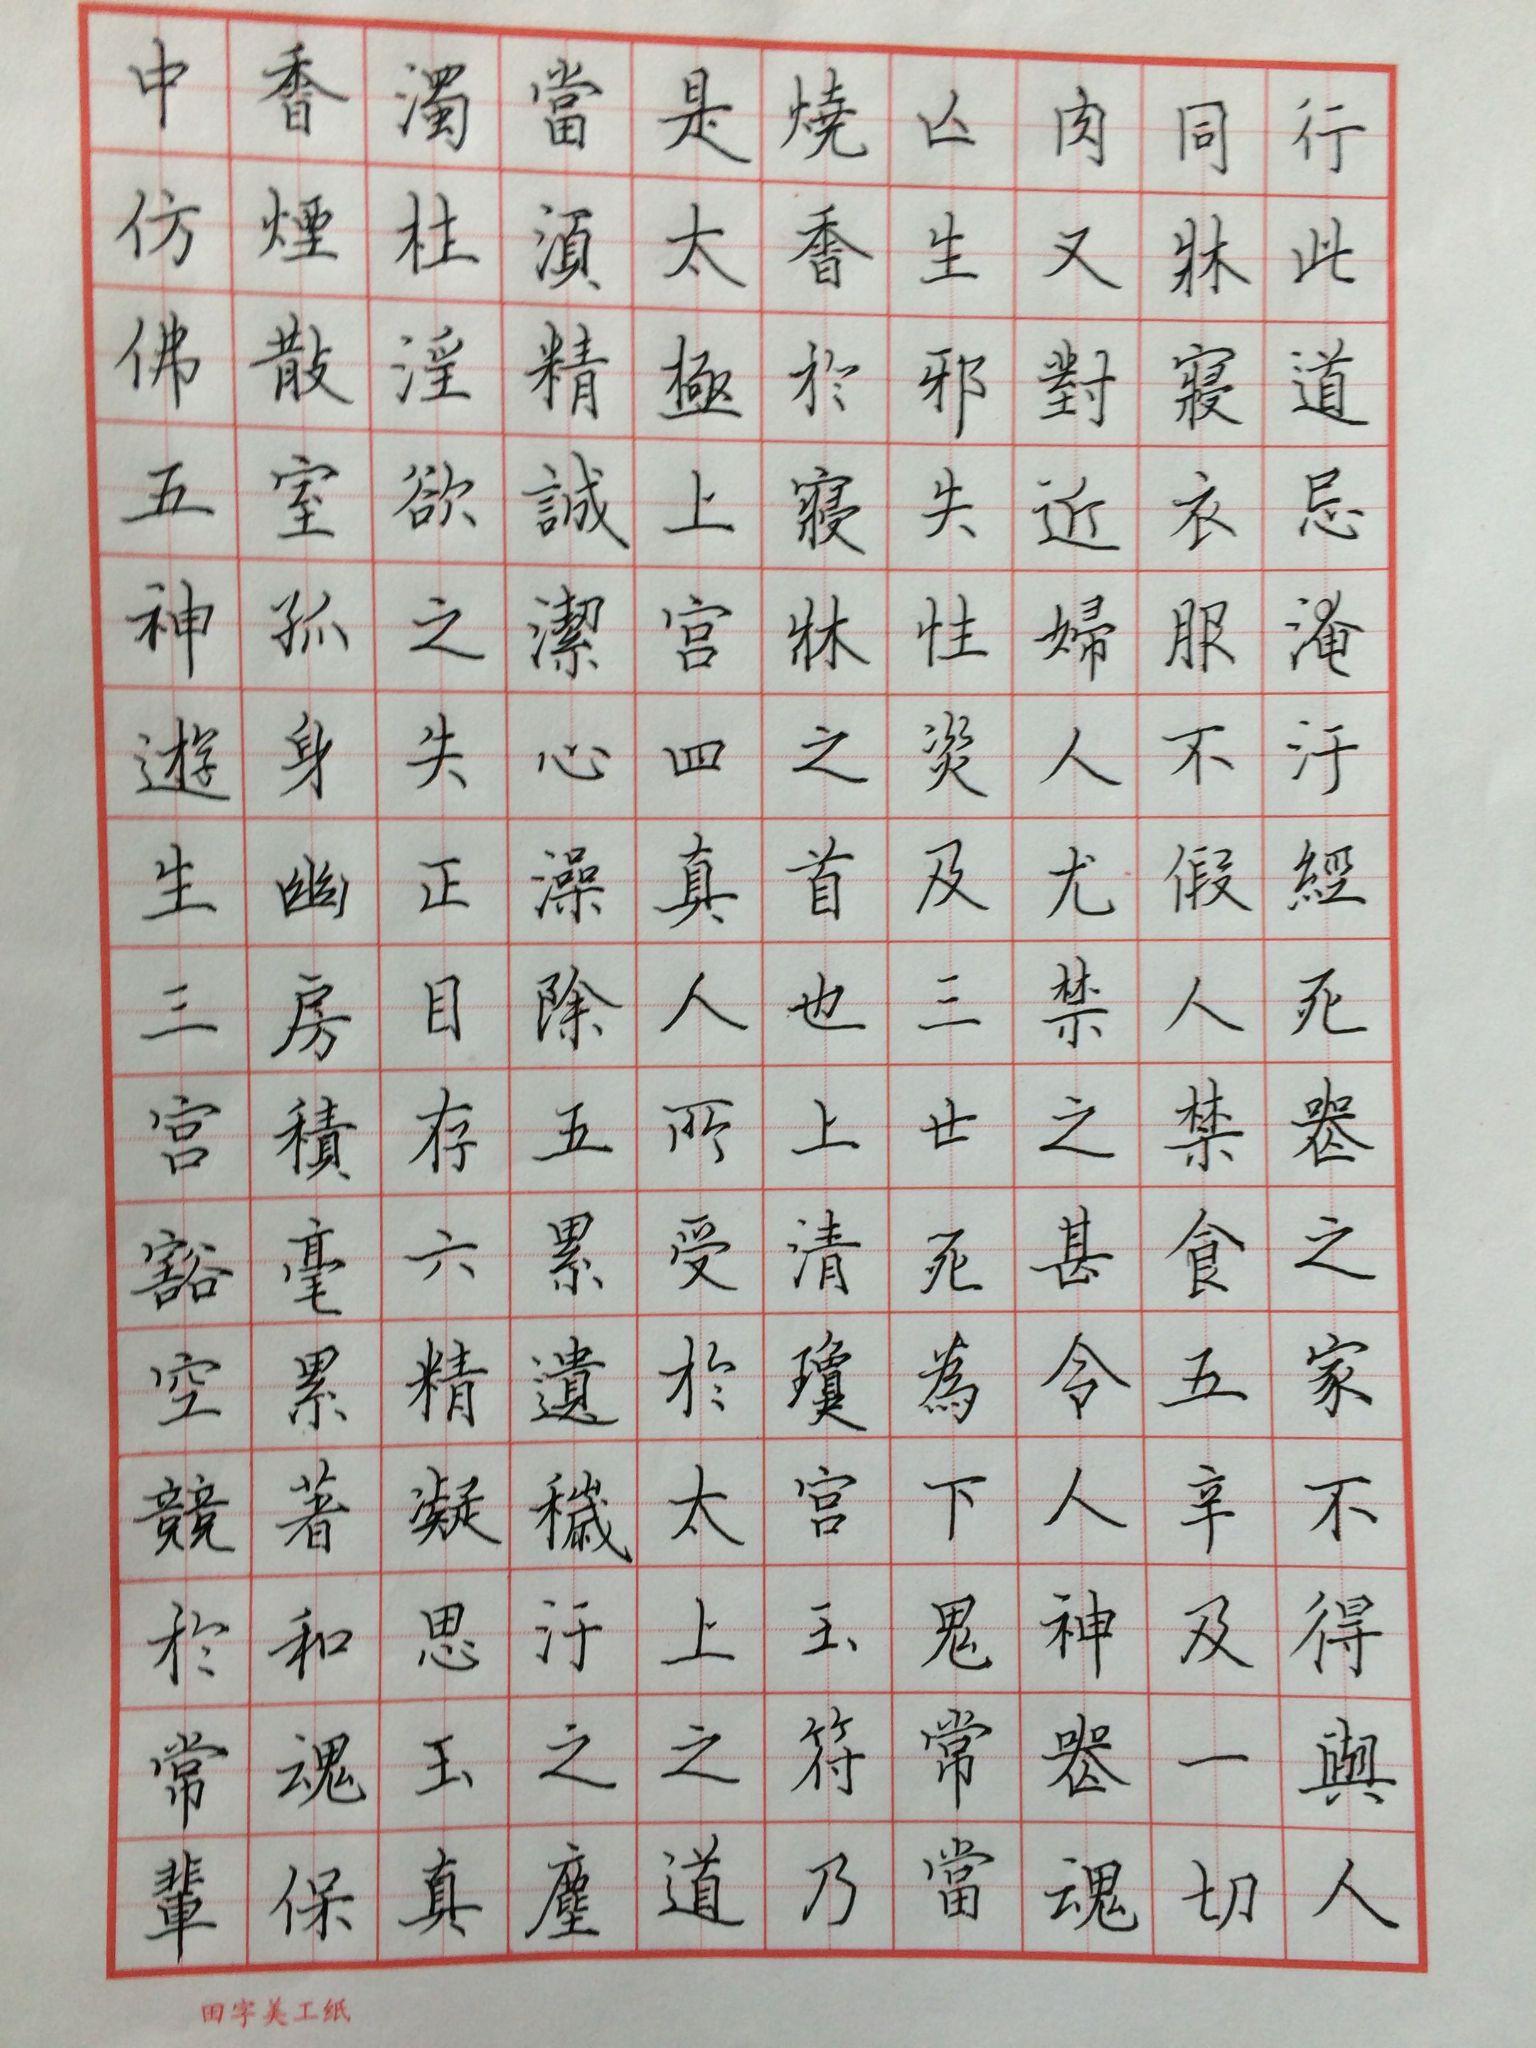 行此道忌淹汙經死器之家不得與人
同牀寢衣服不假人禁食五辛及一切
肉又對近婦人尤禁之甚令人神器魂
亾生邪失性災及三世死為下鬼常當
燒香於寢牀之首也上清瓊宮玉符乃
是太極上宮四真人所受於太上之道
當須精誠潔心澡除五累遺穢汙之塵
濁杜淫欲之失正目存六精凝思玉真
香煙散室孤身幽房積毫累著和魂保
中仿佛五神遊生三宮豁空競於常輩
田字美工纸